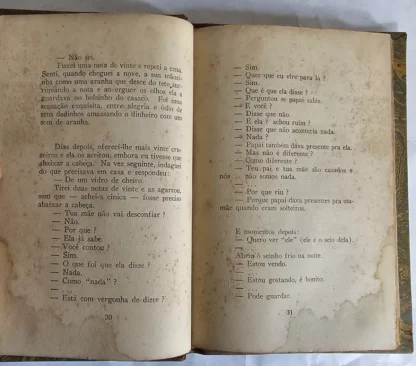 — Não sei.
Puxei uma nota de vinte e repeti a cena.
Senti, quando cheguei a nove, a sua mãozi-
nha como uma aranha que desce do teto,
rumando a nota e ao erguer os olhos ela a
guardava no bolsinho do casaco. Foi uma
sensação esquisita, entre alegria e ódio de
seus dedinhos amassando o dinheiro com um
tom de aranha.
Dias depois, ofereci-lhe mais vinte cru-
zeiros e ela os aceitou, embora eu tivesse que
abaixar a cabeça. Na vez seguinte, indaguei
do que precisava em casa e respondeu:
— De um vidro de cheiro.
Tirei duas notas de vinte e as agarrou,
sem que — achei-a cínica — fosse preciso
abaixar a cabeça.
— Tua mãe não vai desconfiar?
— Não.
— Por que?
— Ela já sabe.
— Você contou?
— Sim.
— O que foi que ela disse?
— Nada.
— Como "nada"?
— ....
— Está com vergonha de dizer?
30
— Sim.
— Quer que eu vire para lá?
— Sim.
— Que é que ela disse?
— Perguntou se papai sabe.
— E você?
— Disse que não.
— E ela? achou ruim?
— Disse que não acontecia nada.
— Nada?
— Papai também dava presente pra ela.
— Mas não é diferente?
— Como diferente?
— Teu pai e tua mãe são casados e
nós não somos nada.
— ....
— Por que riu?
— Porque papai dava presentes pra ma-
mãe quando eram solteiros.
E momentos depois:
— Quero ver "ele" (ele é o seio dela).
— ....
Abriu o seinho frio na noite.
— Estou vendo.
— ....
— Estou gostando, é bonito.
— ....
— Pode guardar.
31